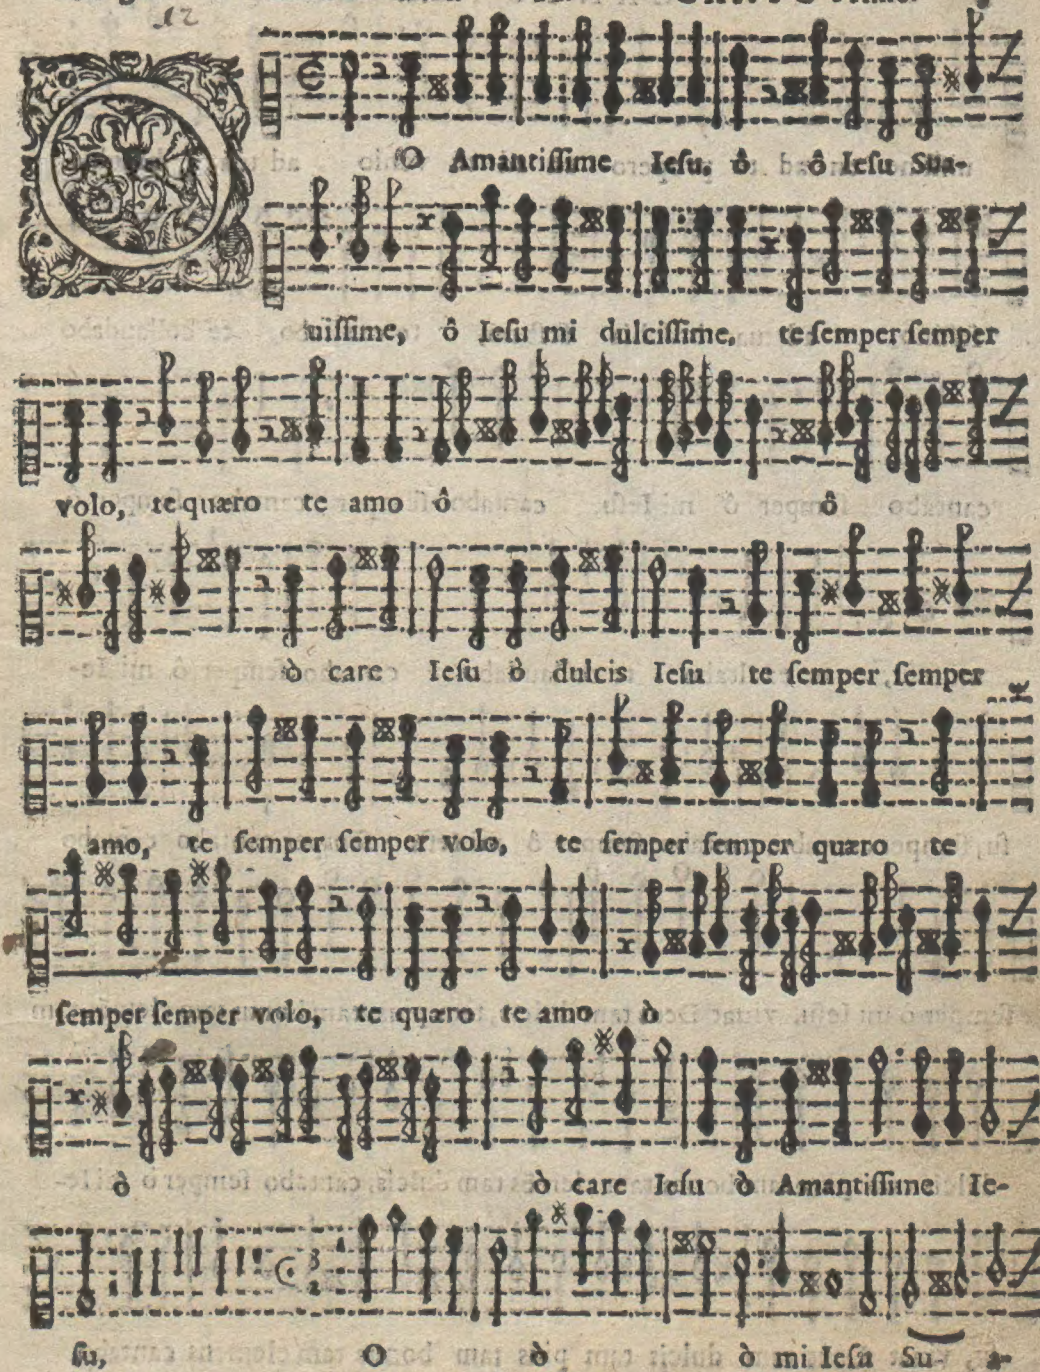 12
O Amantiſſime Ieſu, ô ô Ieſu Sua-
uiſſime, ô Ieſu mi dulciſſime, te ſemper ſemper
volo, te quæro te amo ô ô
ò care Ieſu ò dulcis Ieſu te ſemper ſemper
amo, te ſemper ſemper volo, te ſemper ſemper quæro te
ſemper ſemper volo, te quæro te amo ò
ò ò care Ieſu ò Amantiſſime Ie-
ſu, O ò ò mi Ieſu Su- a-